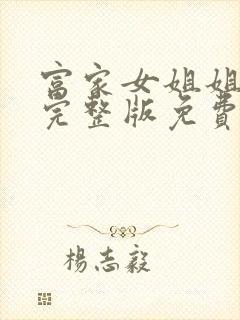 富家女姐姐
完整版免費
楊志毅